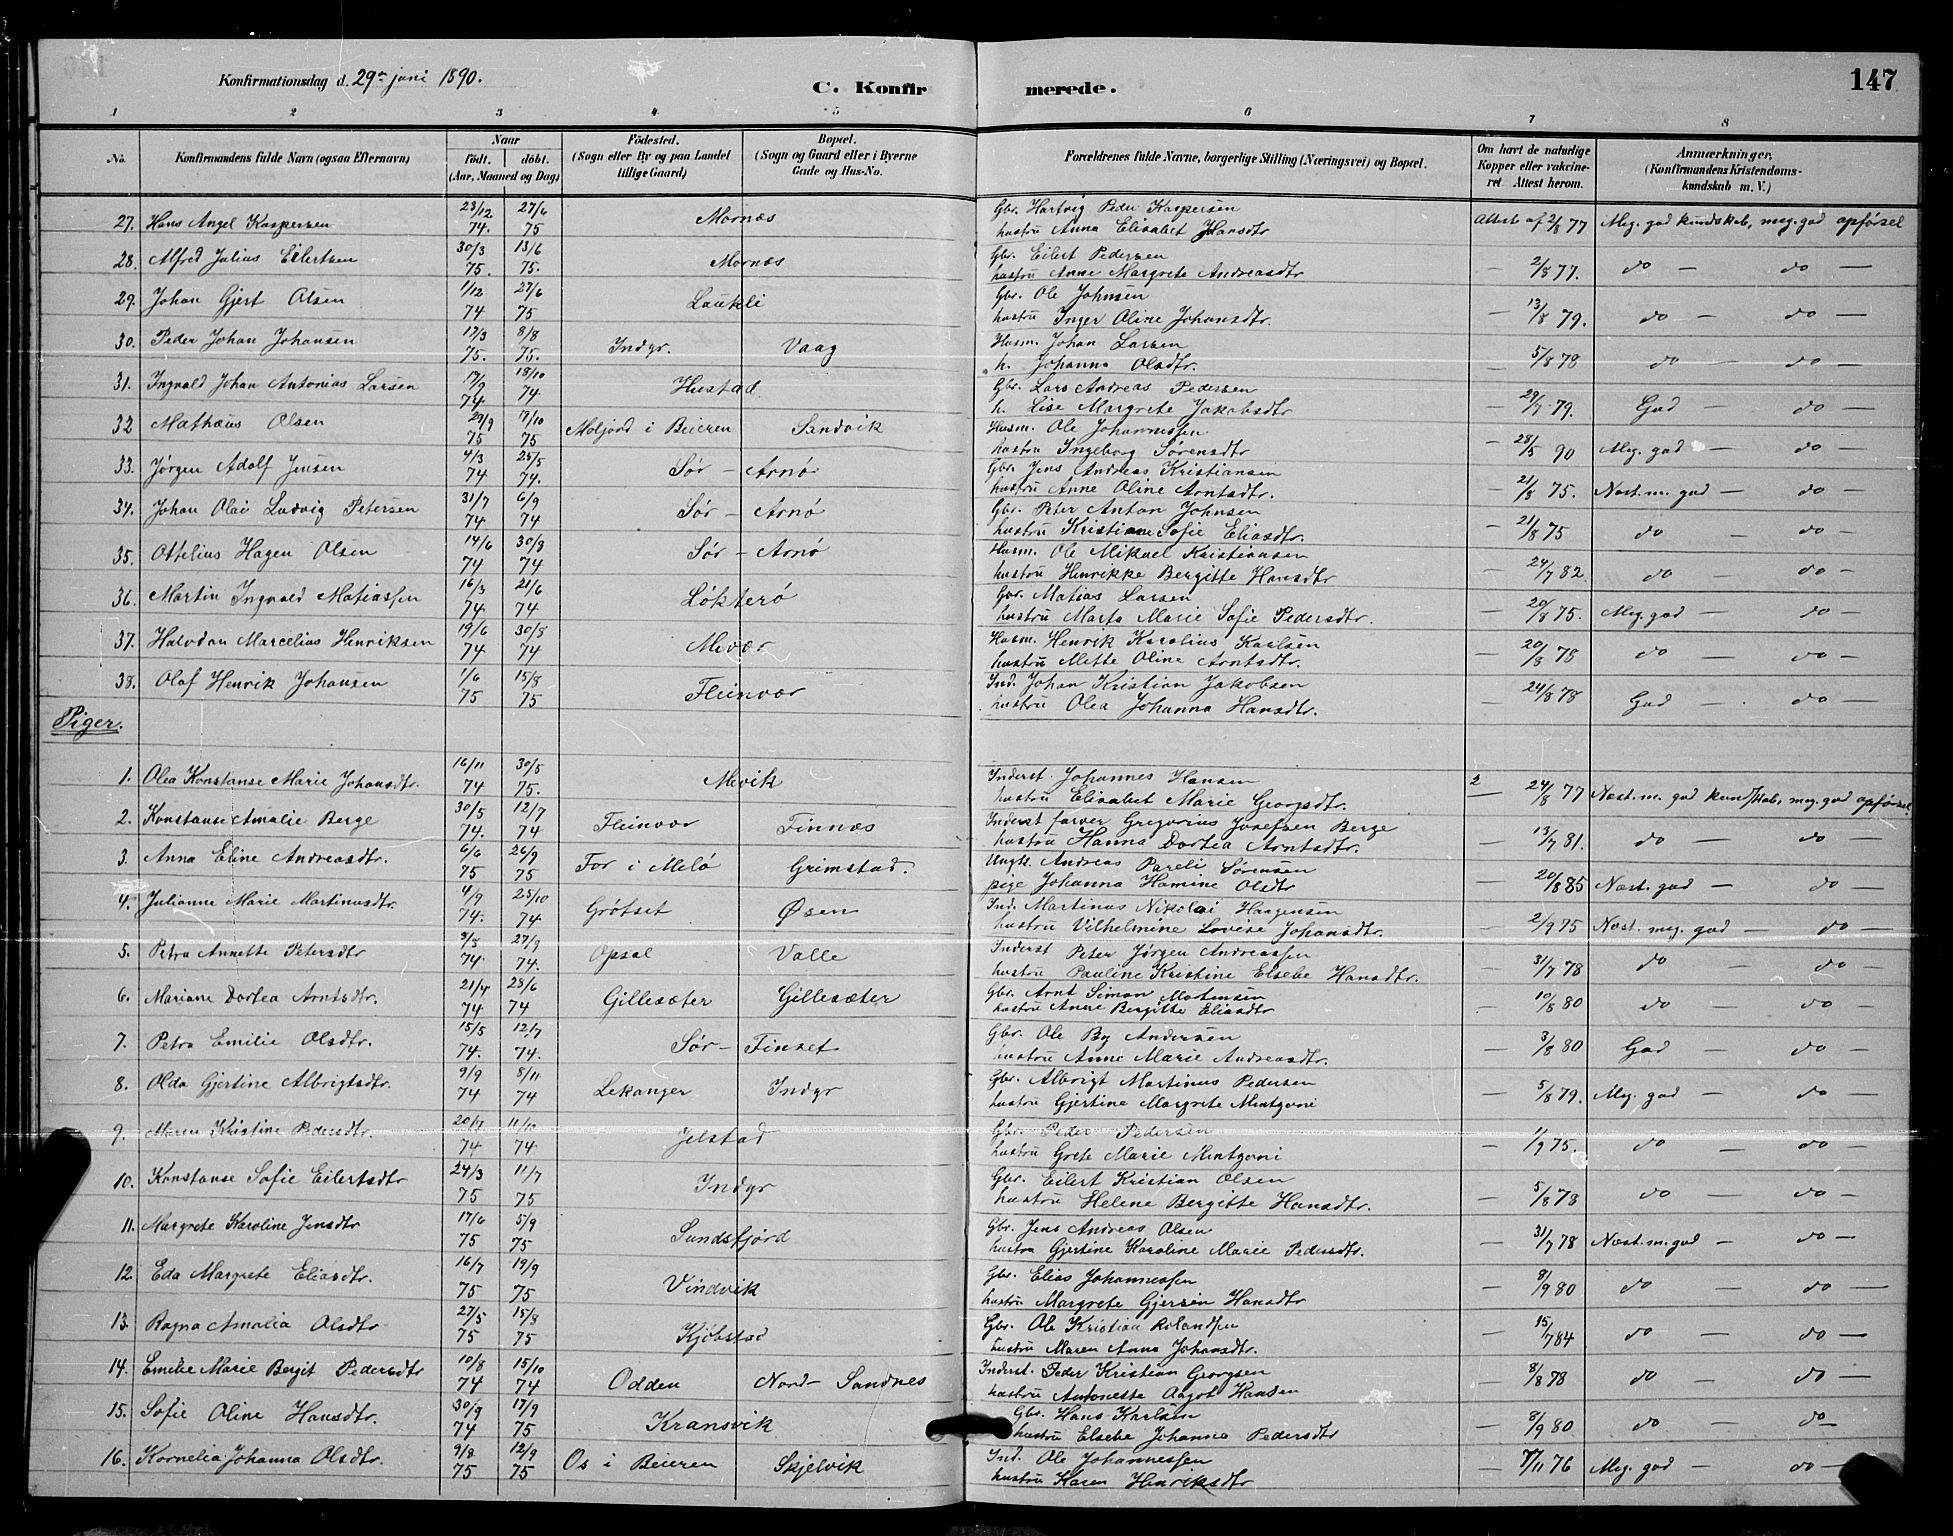 Konfirmationsdag d. 29de juni 1890.
C. Konfirmerede.
147
1 2 3 4 5 6 7 8
No. Konfirmandens fulde Navn (ogsaa Efternavn) Naar født. døbt. (Aar, Maaned og Dag) Fødested. (Sogn eller By og paa Landet tillige Gaard) Bopæl. (Sogn og Gaard eller i Byerne Gade og Hus-No. Forældrenes fulde Navne, borgerlige Stilling (Næringsvei) og Bopæl. Om havt de naturlige Kopper eller vakcineret Attest herom. Anmærkninger. (Konfirmandens Kristendomskundskab m. V.)
27. Hans Angel Kaspersen 23/12 74. 27/6 75 Mornæs Gbr. Hartvig Peder Kaspersen
hustru Anna Elisabet Hansdtr Attest af 2/8 77 Meg. god kundskab, meg. god opførsel
28. Alfred Julius Eilertsen 30/3 75. 13/6 75. Mornæs Gbr. Eilert Pedersen
hustru Anne Margrete Andreasdtr — 2/8 77. do — do —
29. Johan Gjert Olsen 1/12 74 27/6 75 Laukli Gbr. Ole Johnsen
hustru Inger Oline Johansdtr. — 13/8 79. do — do —
30. Peder Johan Johansen 17/3 75. 8/8 75. Indyr. Vaag Husm. Johan Larsen
h. Johanna Olsdtr. — 5/8 78 do — do —
31. Ingvald Johan Antonias Larsen 17/9 74 18/10 74 Hustad Gbr. Lars Andreas Pedersen
h. Lise Margrete Jakobsdtr — 29/7 79. God — do —
32 Mathæus Olsen 29/9 75 7/10 75 Moljord i Beieren Sandvik Husm. Ole Johannessen
hustru Ingeborg Sørensdtr — 28/5 90 Meg. god — do —
33. Jørgen Adolf Jensen 4/3 74 25/5 74. Sør - Arnø Gbr. Jens Andreas Kristiansen
hustru Anne Oline Arntsdtr. — 21/8 75. Næst. m. god — do —
34. Johan Olai Ludvig Petersen 31/7 74 6/9 74 Sør - Arnø Gbr. Peter Anton Johnsen
hustru Kristiane Sofie Eliasdtr. — 21/8 75 do do —
35. Ottelius Hagen Olsen 14/6 74 30/8 74 Sør - Arnø Husm. Ole Mikael Kristiansen
hustru Henrikke Bergitte Hansdtr — 24/7 82. do — do —
36. Martin Ingvald Matiassen 16/3 74. 21/6 74 Løkterø Gbr. Matias Larsen
hustru Marta Marie Sofie Pedersdtr. — 20/8 75. Meg. god — do —
37. Halvdan Marcelius Henriksen 19/6 74 30/8 74 Mevær Husm. Henrik Karolius Karlsen
hustru Mette Oline Arntsdtr. — 20/8 78 do do —
38. Olaf Henrik Johansen 1/6 75 15/8 75 Fleinvær Ind. Johan Kristian Jakobsen
hustru Olea Johanna Hansdtr. — 24/8 78 God — do —
Piger.
1. Olea Konstanse Marie Johansdtr. 16/11 74 30/5 75. Mevik Inderst. Johannes Hansen
hustru Elisabet Marie Georgsdtr. 2 — 24/8 77 Næst. m. god kundskab, meg. god opførsel
2. Konstanse Amalie Berge 30/5 74. 12/7 74 Fleinvær Finnæs Inderst farver Gregorius Josefsen Berge
hustru Hanna Dortea Arntsdtr. — 13/7 81. do — do —
3. Anna Eline Andreasdtr. 6/6 75 26/9 75 For i Melø Grimstad. Ungk. Andreas Pareli Sørensen
pige Johanna Hamine Olsdtr — 20/8 85 Næst. god — do —
4. Julianne Marie Martinusdtr. 4/9 74. 25/10 74. Grøtset Øsen Ind. Martinus Nikolai Haagensen
hustru Vilhelmine Lovise Johansdtr. — 2/9 75 Næst. meg. god — do —
5. Petra Annette Petersdtr 74 27/9 74. Opsal Valle Inderst Peter Jørgen Andreassen
hustru Pauline Kristine Elsebe Hansdtr. — 31/7 78 do — do —
6. Mariane Dortea Arntsdtr. 21/4 74 28/6 74 Gillesæter Gillesæter Gbr. Arnt Simon Mortensen
hustru Anne Bergitte Eliasdtr 10/8 80 do — do —
7. Petra Emilie Olsdtr. 15/5 74. 12/7 74. Sør - Finset Gbr. Ole By Andersen
hustru Anne Marie Andreasdtr. — 3/8 80 God — do —
8. Olda Gjertine Albrigtsdtr. 9/9 74 8/11 74 Lekanger Indyr Gbr. Albrigt Martinus Pedersen
hustru Gjertine Margrete Mentzoni — 5/8 79. Meg. god — do —
9. Maren Kristine Pedersdtr. 20/7 74 11/10 74. Jelstad Gbr. Peder Pedersen
hustru Grete Marie Mentzoni — 1/9 75. do — do —
10. Konstanse Sofie Eilertsdtr 24/3 75 11/7 75 Indyr Gbr. Eilert Kristian Olsen
hustru Helene Bergitte Hansdtr. — 5/8 78 do — do —
11. Margrete Karoline Jensdtr 17/6 75 5/9 75 Sundsfjord Gbr. Jens Andreas Olsen
hustru Gjertine Karoline Marie Pedersdtr. — 31/7 78 Næst. m. god — do —
12. Eda Margrete Eliasdtr. 16/7 75 19/9 75 Vindvik Gbr. Elias Johannessen
hustru Margrete Gjersen Hansdtr — 8/9 80 do — do —
13. Ragna Amalia Olsdtr 27/5 75 15/8 75 Kjøbstad Gbr. Ole Kristian Rolandsen
hustru Maren Anna Johansdtr. — 15/7 84 do — do —
14. Emilie Marie Bergit Pedersdtr 10/8 74 15/10 74 Odden Nord- Sandnes Inderst. Peder Kristian Georgsen
hustru Antonette Aagot Hansen — 8/8 78 do — do —
15. Sofie Oline Hansdtr. 30/9 74 17/9 75 Kransvik Gbr. Hans Karlsen
hustru Elsebe Johanna Pedersdtr — 8/9 80 do — do —
16. Kornelia Johanna Olsdtr. 9/8 75 12/9 75 Os i Beieren Skjelvik Ind. Ole Johannessen
hustru Karen Henriksdtr — 7/11 76 Meg. god — do —